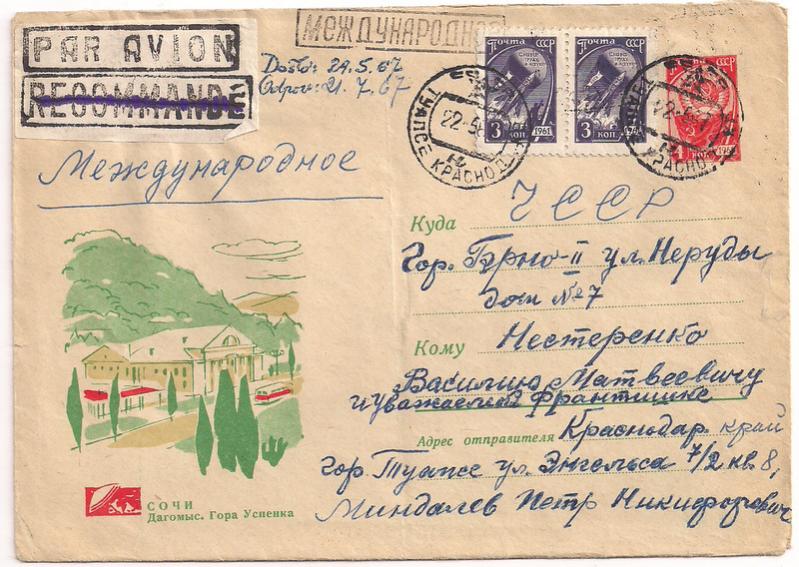 PAR AVION
RECOMMANDÉ
МЕЖДУНАРОДНОЕ
Došlo: 29.5.67
Odpov: 21.7.67
Почта СССР
3 коп. 1961
Почта СССР
3 коп.
СССР
4
ТУАПСЕ КРАСНОД.
22-5
ТУАПСЕ КРАСНОД.
22-5
Международное
Куда ЧССР
Гор. Бэрно-II ул. Неруды
дом № 7
Кому Нестеренко
Василию Матвеевичу
и уважаемой Франтишке
Адрес отправителя Краснодар. край
гор. Туапсе ул. Энгельса 7/2 кв. 8,
Миндалев Петр Никифорович
СОЧИ
Дагомыс. Гора Успенка